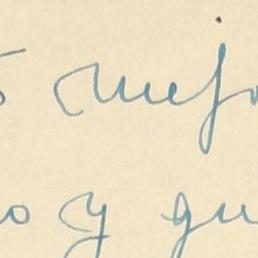 mejo
o y qu